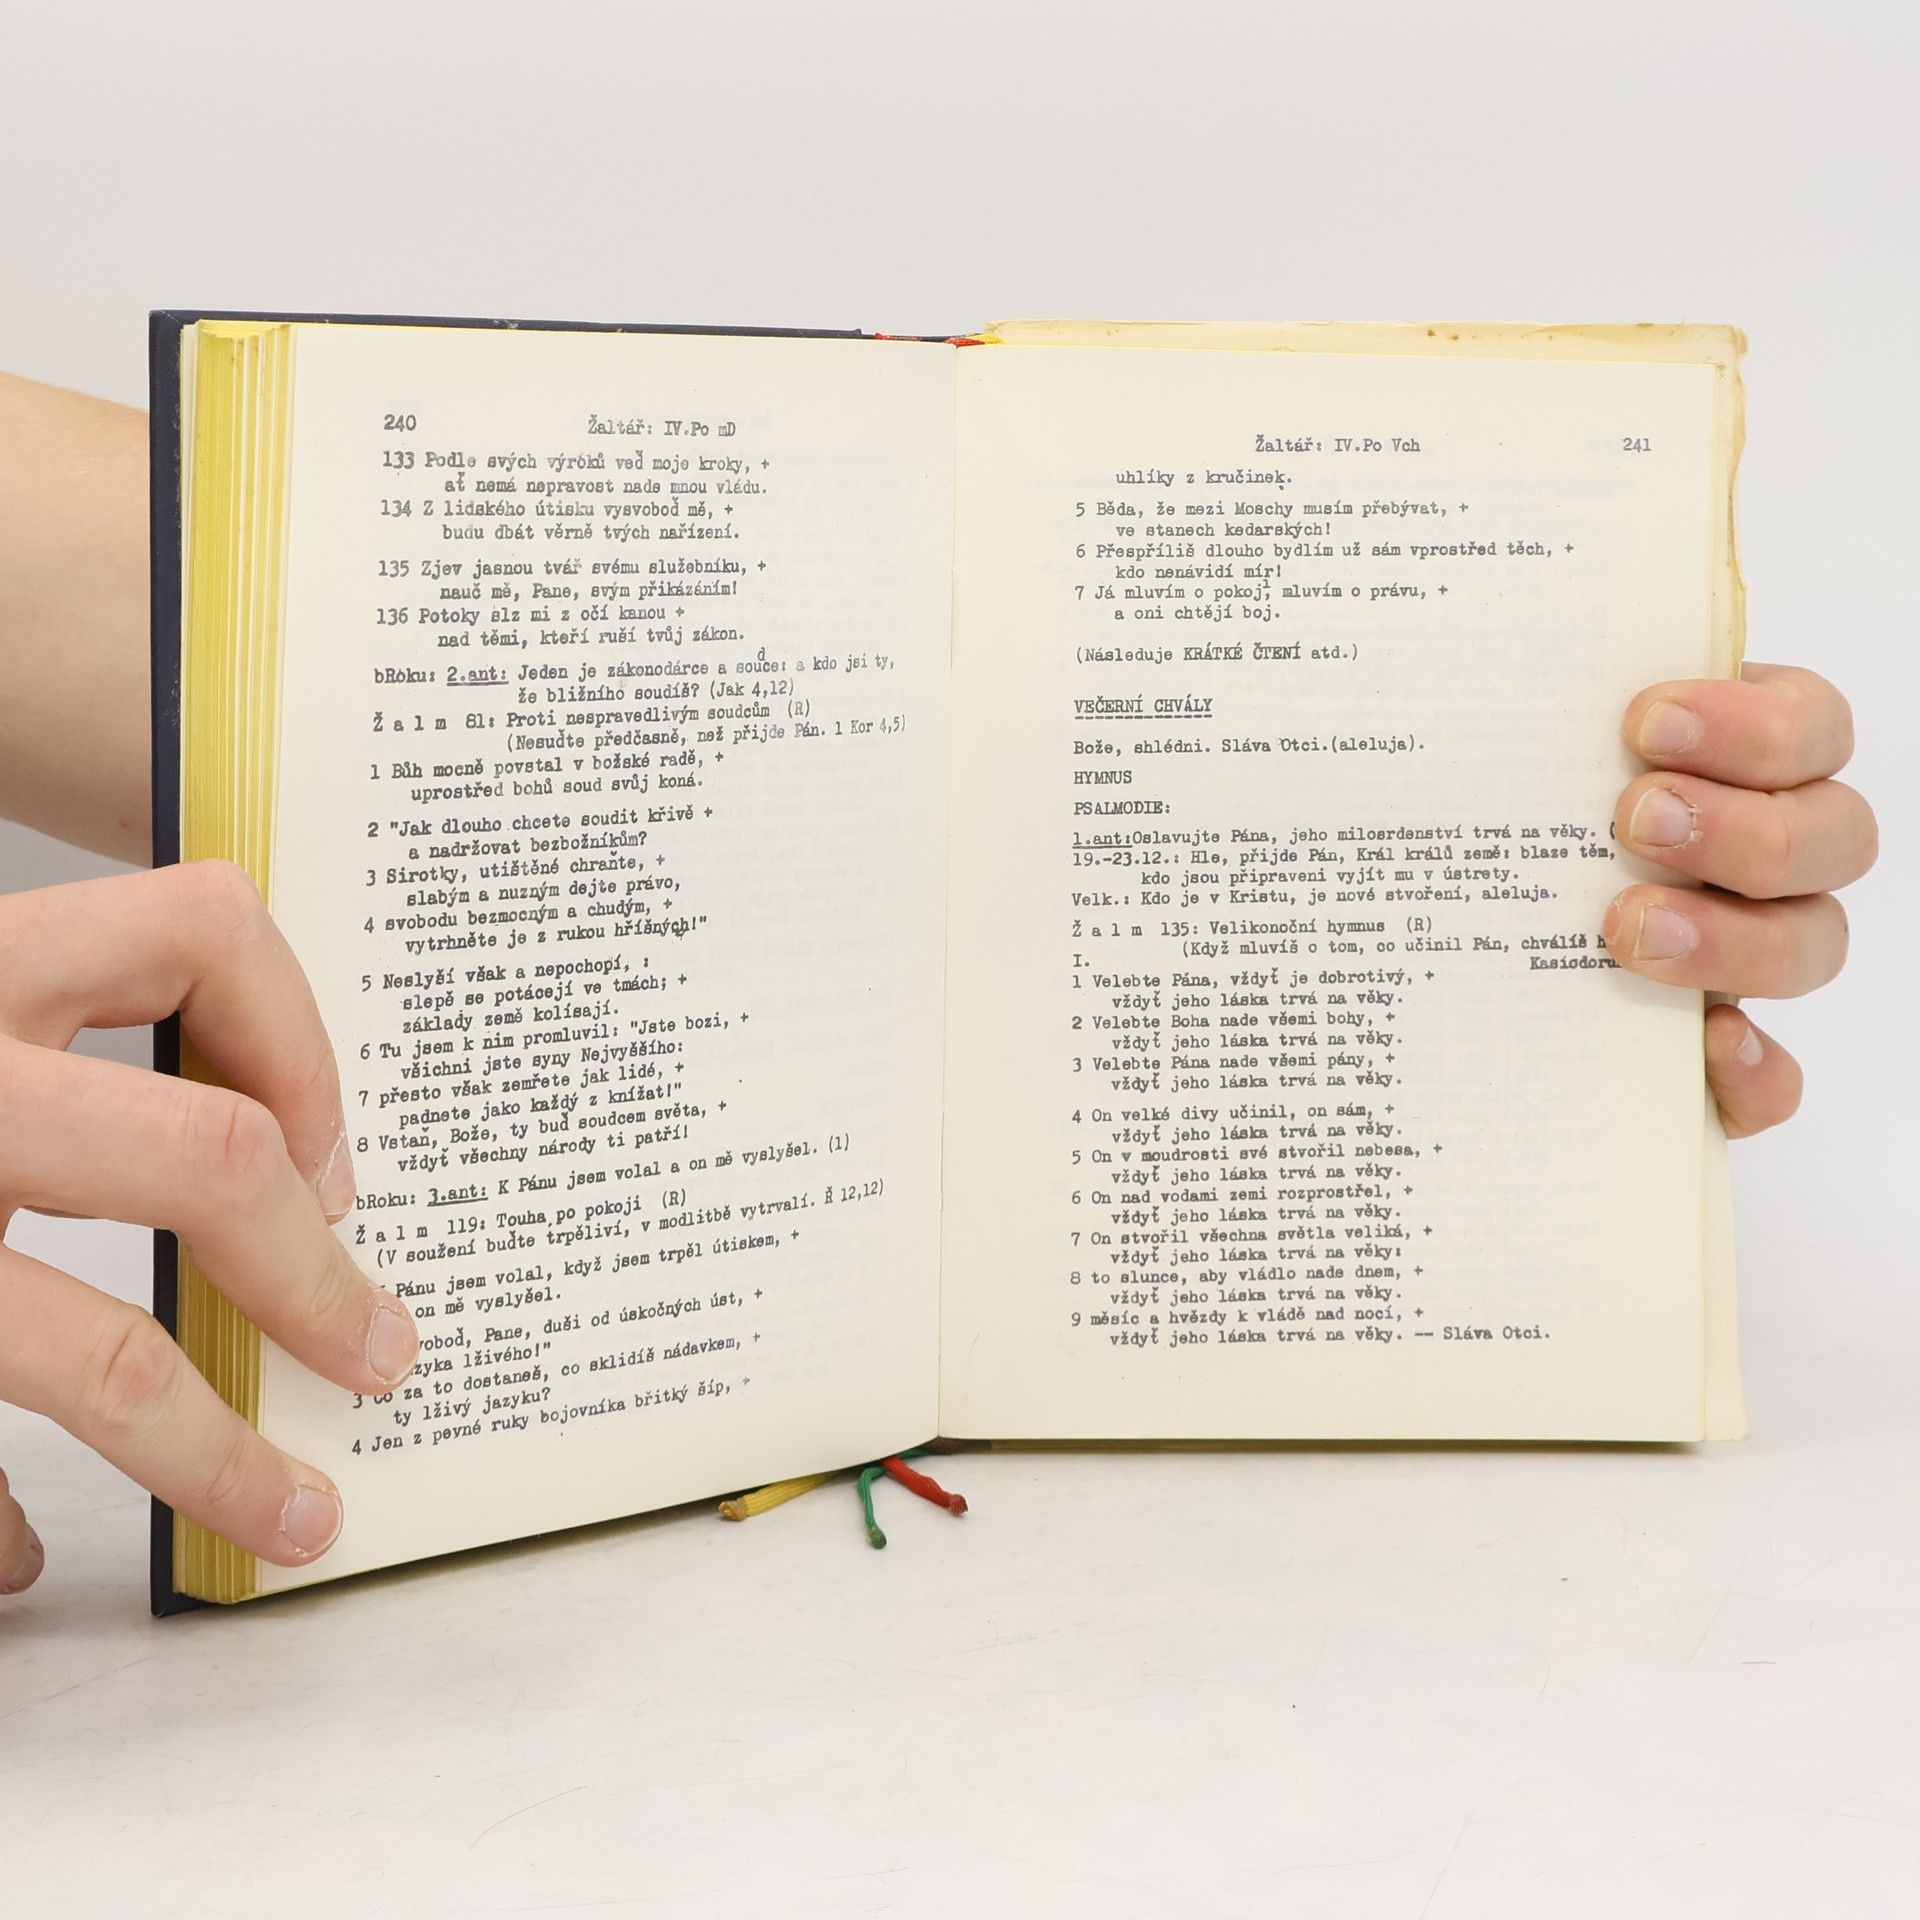 240 Žaltář: IV.Po mD
133 Podle svých výroků veď moje kroky, +
ať nemá nepravost nade mnou vládu.
134 Z lidského útisku vysvoboď mě, +
budu dbát věrně tvých nařízení.
135 Zjev jasnou tvář svému služebníku, +
nauč mě, Pane, svým přikázáním!
136 Potoky slz mi z očí kanou +
nad těmi, kteří ruší tvůj zákon.
bRoku: 2.ant: Jeden je zákonodárce a soudce: a kdo jsi ty,
že bližního soudíš? (Jak 4,12)
Ž a l m 81: Proti nespravedlivým soudcům (R)
(Nesuďte předčasně, než přijde Pán. 1 Kor 4,5)
1 Bůh mocně povstal v božské radě, +
uprostřed bohů soud svůj koná.
2 "Jak dlouho chcete soudit křivě +
a nadržovat bezbožníkům?
3 Sirotky, utištěné chraňte, +
slabým a nuzným dejte právo,
4 svobodu bezmocným a chudým, +
vytrhněte je z rukou hříšných!"
5 Neslyší však a nepochopí, :
slepě se potácejí ve tmách; +
základy země kolísají.
6 Tu jsem k nim promluvil: "Jste bozi, +
všichni jste syny Nejvyššího:
7 přesto však zemřete jak lidé, +
padnete jako každý z knížat!"
8 Vstaň, Bože, ty buď soudcem světa, +
vždyť všechny národy ti patří!
bRoku: 3.ant: K Pánu jsem volal a on mě vyslyšel. (1)
Ž a l m 119: Touha po pokoji (R)
(V soužení buďte trpěliví, v modlitbě vytrvalí. Ř 12,12)
Pánu jsem volal, když jsem trpěl útiskem, +
on mě vyslyšel.
voboď, Pane, duši od úskočných úst, +
zyka lživého!"
3 Co za to dostaneš, co sklidíš nádavkem, +
ty lživý jazyku?
4 Jen z pevné ruky bojovníka břitký šíp, +
Žaltář: IV.Po Vch 241
uhlíky z kručinek.
5 Běda, že mezi Moschy musím přebývat, +
ve stanech kedarských!
6 Přespříliš dlouho bydlím už sám vprostřed těch, +
kdo nenávidí mír!
7 Já mluvím o pokoji, mluvím o právu, +
a oni chtějí boj.
(Následuje KRÁTKÉ ČTENÍ atd.)
VEČERNÍ CHVÁLY
Bože, shlédni. Sláva Otci.(aleluja).
HYMNUS
PSALMODIE:
1.ant:Oslavujte Pána, jeho milosrdenství trvá na věky. (
19.-23.12.: Hle, přijde Pán, Král králů země: blaze těm,
kdo jsou připraveni vyjít mu v ústrety.
Velk.: Kdo je v Kristu, je nové stvoření, aleluja.
Ž a l m 135: Velikonoční hymnus (R)
(Když mluvíš o tom, co učinil Pán, chválíš h
I. Kasiodoru
1 Velebte Pána, vždyť je dobrotivý, +
vždyť jeho láska trvá na věky.
2 Velebte Boha nade všemi bohy, +
vždyť jeho láska trvá na věky.
3 Velebte Pána nade všemi pány, +
vždyť jeho láska trvá na věky.
4 On velké divy učinil, on sám, +
vždyť jeho láska trvá na věky.
5 On v moudrosti své stvořil nebesa, +
vždyť jeho láska trvá na věky.
6 On nad vodami zemi rozprostřel, +
vždyť jeho láska trvá na věky.
7 On stvořil všechna světla veliká, +
vždyť jeho láska trvá na věky:
8 to slunce, aby vládlo nade dnem, +
vždyť jeho láska trvá na věky.
9 měsíc a hvězdy k vládě nad nocí, +
vždyť jeho láska trvá na věky. -- Sláva Otci.